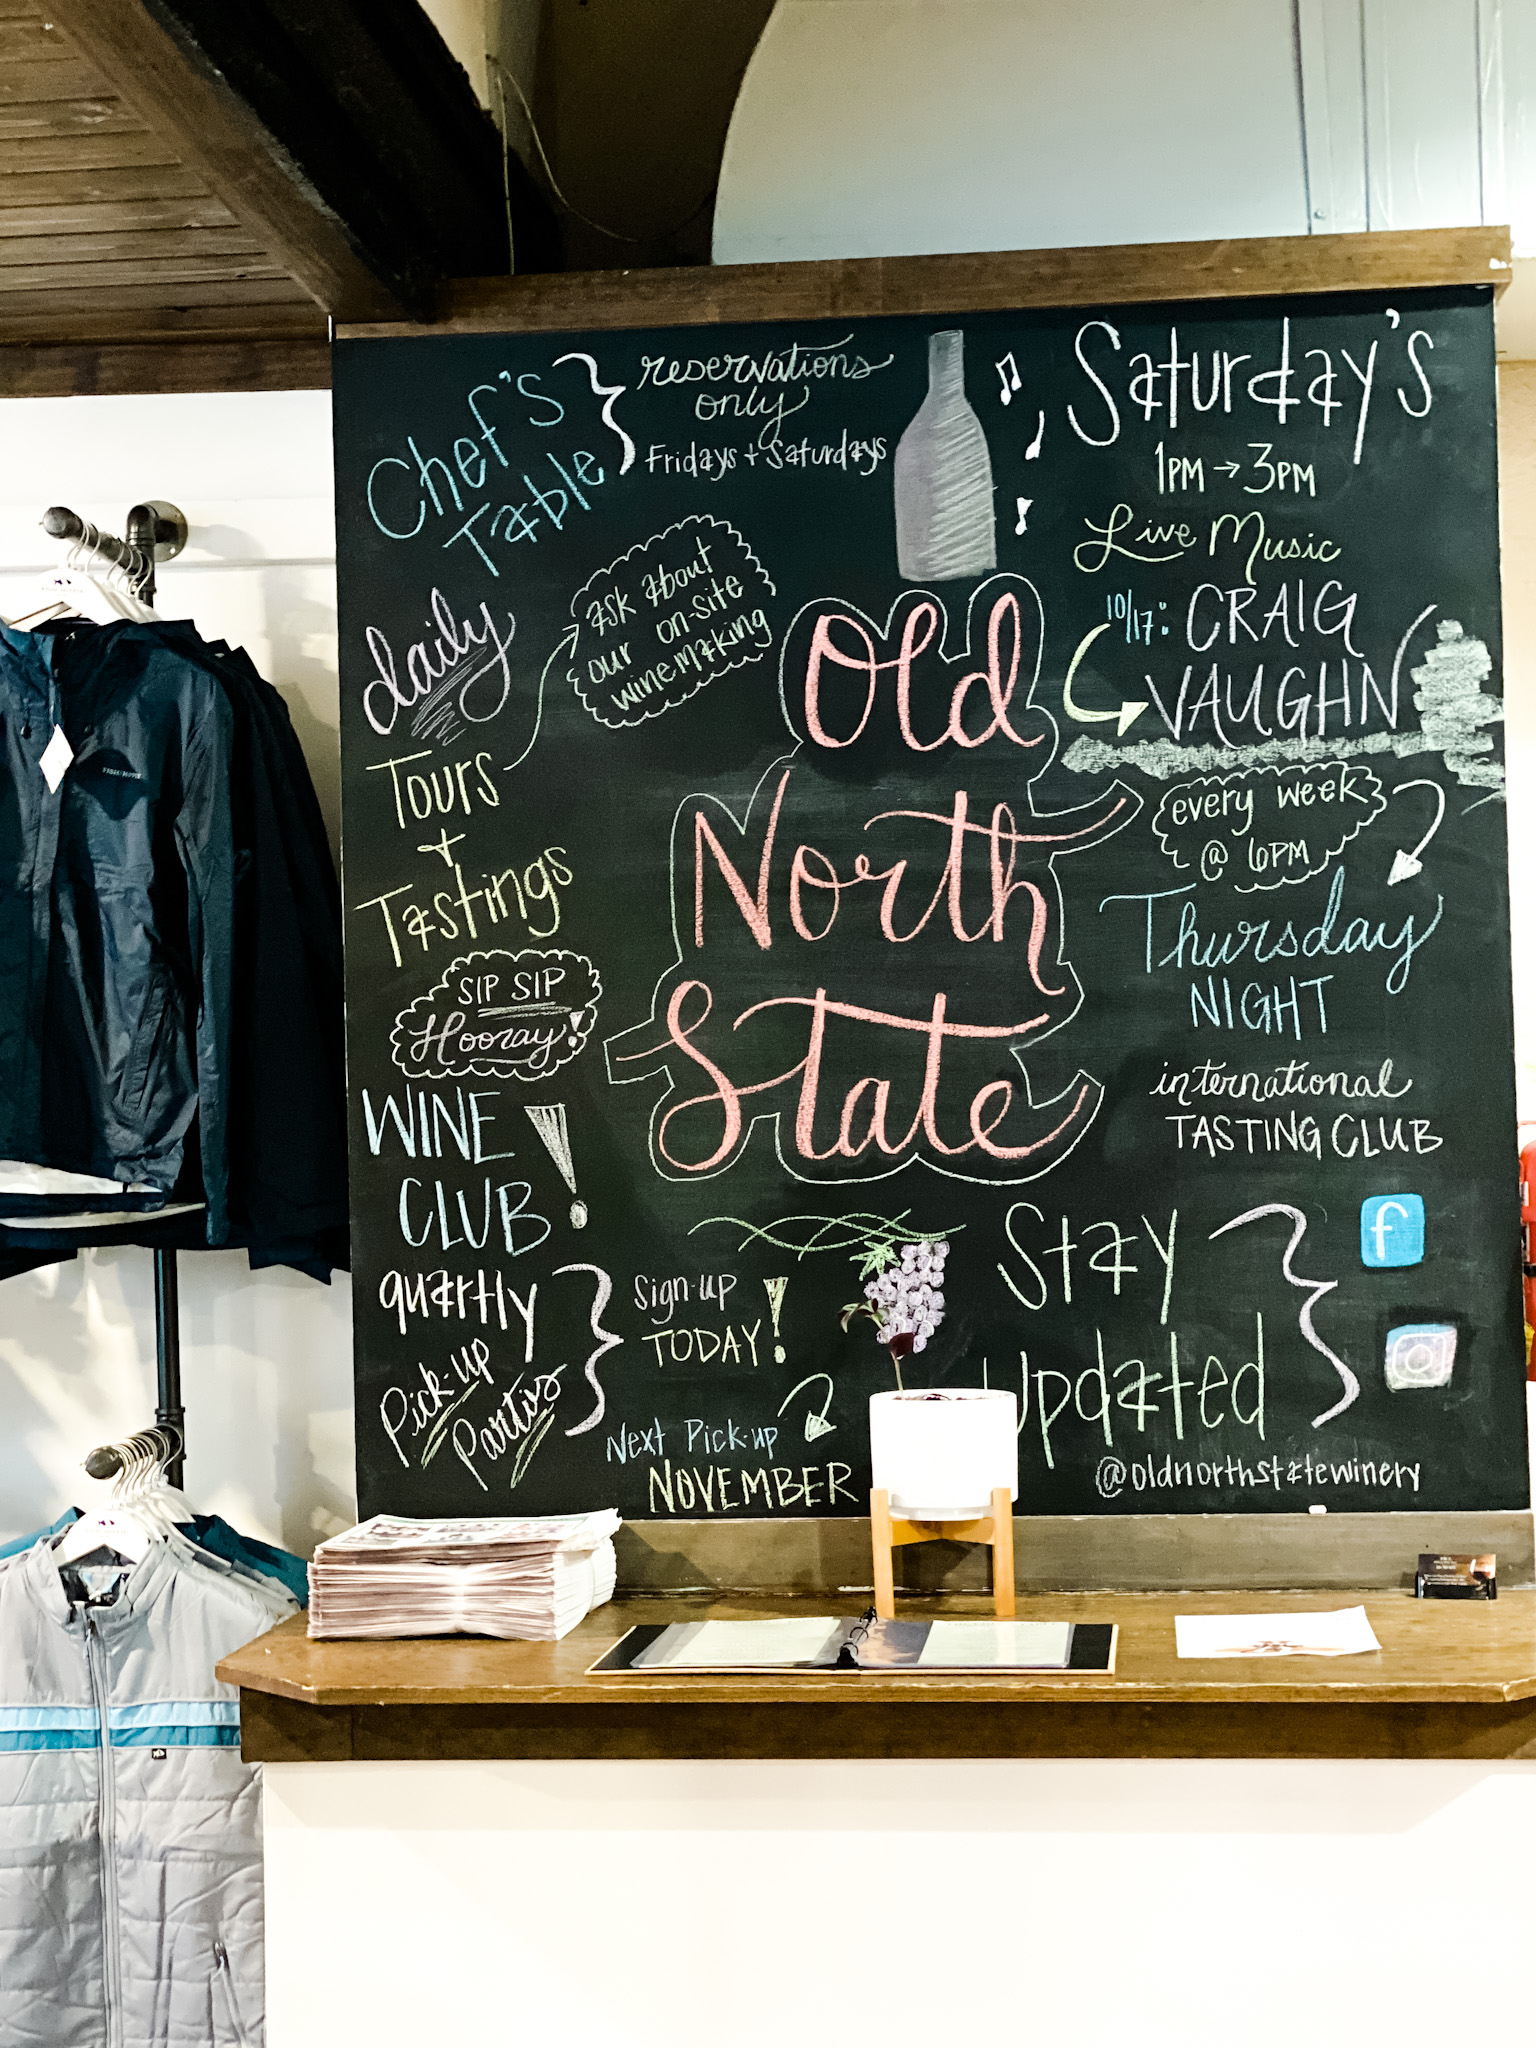 Chef's
Table
reservations
only
Fridays + Saturdays
daily
Tours
+
Tastings
ask about
our on-site
winemaking
SIP SIP
Hooray!
WINE
CLUB!
quartly
Pick-up
Parties
Sign-up
TODAY!
Next Pick-up
NOVEMBER
Old
North
State
Saturday's
1PM → 3PM
Live Music
10/17: CRAIG
VAUGHN
every week
@ 6PM
Thursday
NIGHT
international
TASTING CLUB
Stay
Updated
f
@oldnorthstatewinery